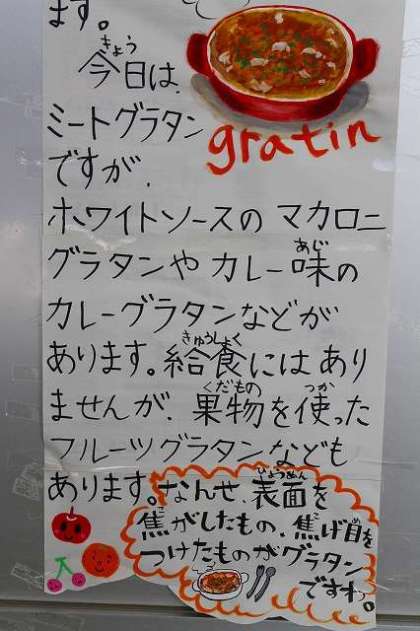 ます。
きょう
今日は、
ミートグラタン
gratin
ですが、
ホワイトソースの マカロニ
あじ
グラタンや カレー味の
カレーグラタンなどが
きゅうしょく
あります。給食には あり
くだもの つか
ませんが、果物を使った
フルーツグラタンなども
あります。
ひょうめん
なんせ、表面を
こ こ め
焦がしたもの、焦げ目を
つけたものがグラタン
ですわ。